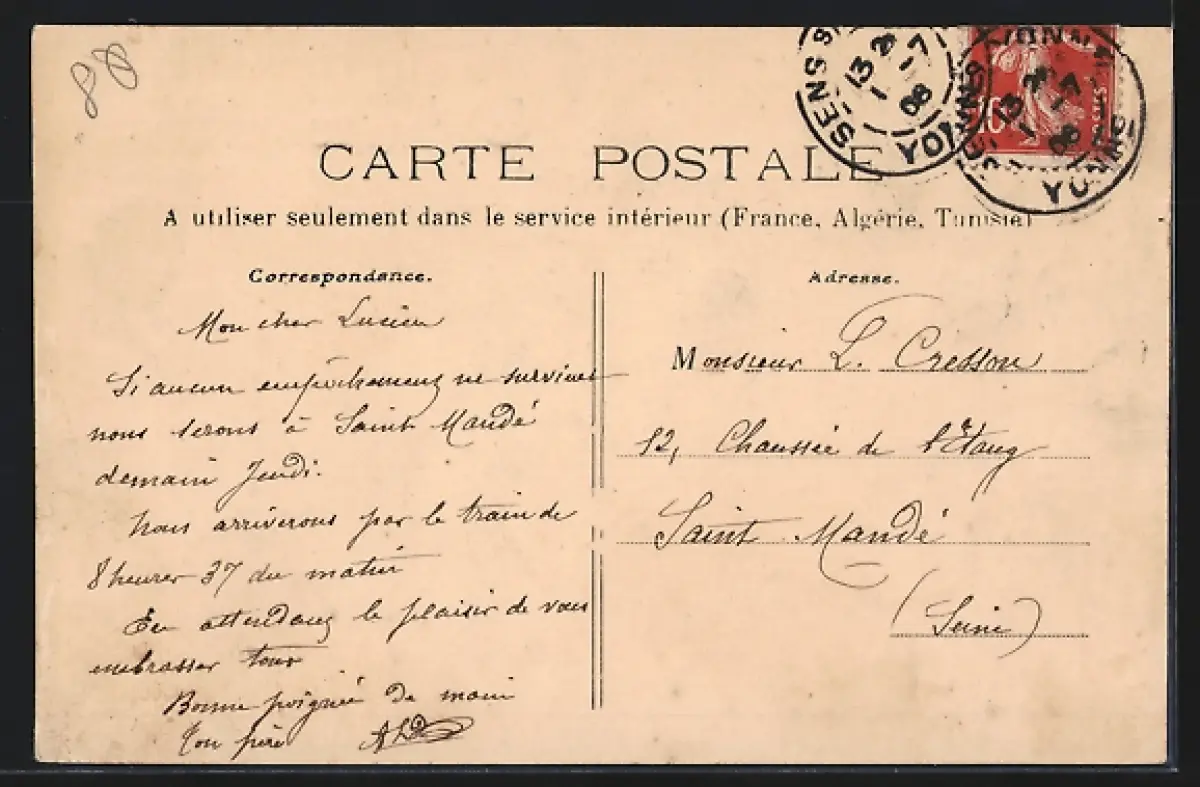 88
SENS S
13 20
1-7
08
YONNE
10
SENS YONNE
13 20
1-7
08
YONNE
CARTE POSTALE
A utiliser seulement dans le service intérieur (France, Algérie, Tunisie)
Correspondance.
Mon cher Lucien
Si aucun empêchement ne survient
nous serons à Saint Mandé
demain Jeudi.
Nous arriverons par le train de
8 heures 37 du matin
En attendant le plaisir de vous
embrasser tous
Bonne poignée de main
Ton père
Adresse.
Monsieur L. Cresson
12, Chaussée de l'Étang
Saint Mandé
(Seine)